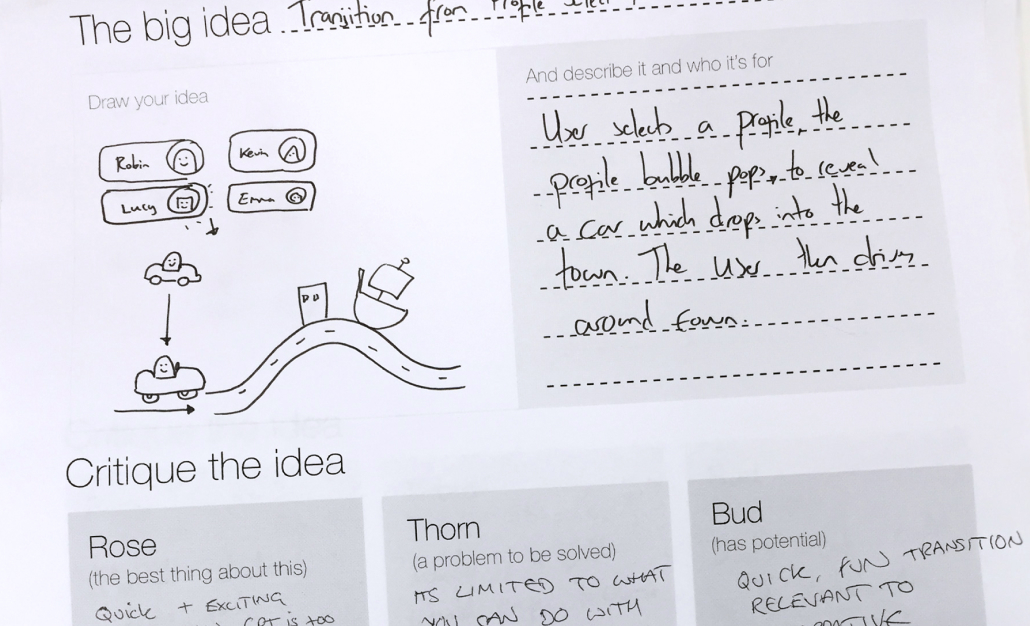 The big idea Transition from Profile select
Draw your idea
Robin
Kevin
Lucy
Emma
And describe it and who it's for
User selects a profile, the
profile bubble pops, to reveal
a car which drops into the
town. The user then drives
around town.
Critique the idea
Rose
(the best thing about this)
QUICK + EXCITING
IS TOO
Thorn
(a problem to be solved)
ITS LIMITED TO WHAT
YOU CAN DO WITH
Bud
(has potential)
QUICK, FUN TRANSITION
RELEVANT TO